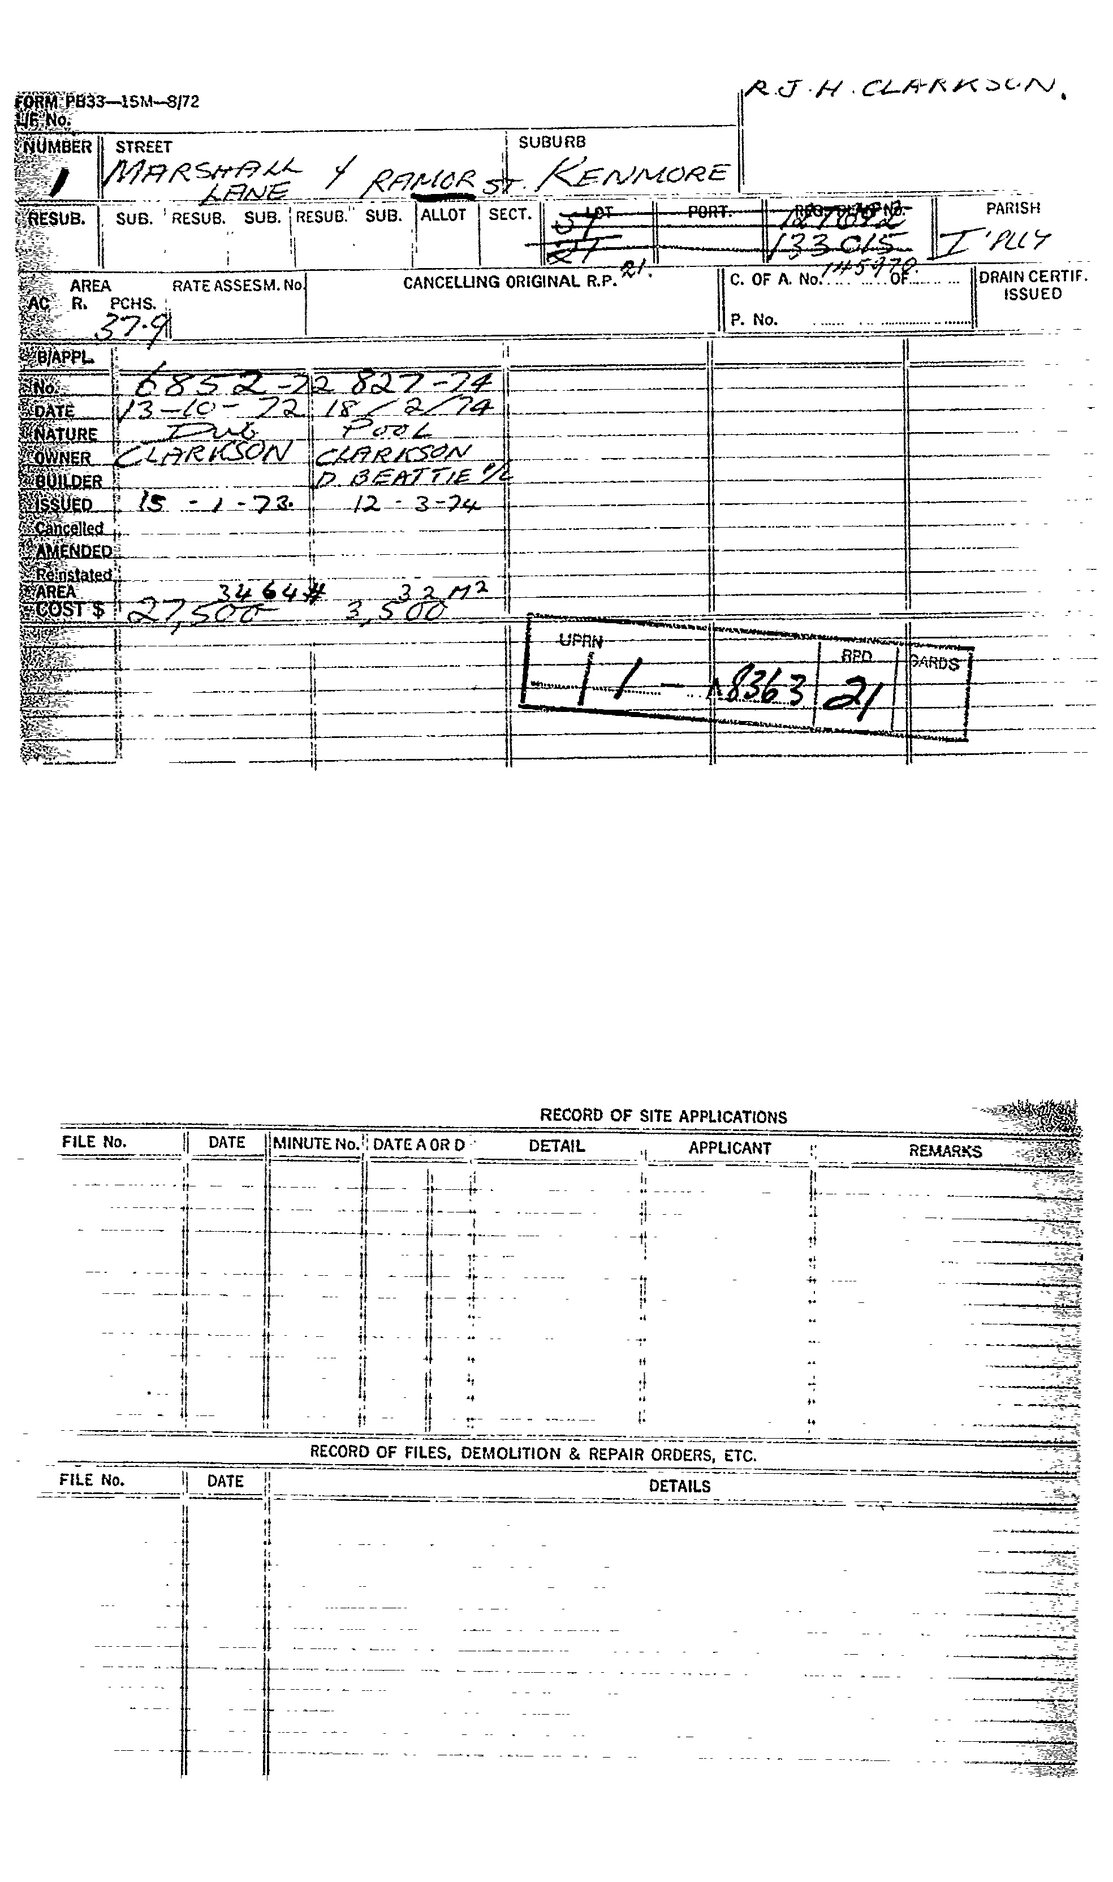 R.J.H. CLARKSON.
FORM PB33—15M—8/72
L/F No.
NUMBER STREET SUBURB
1 MARSHALL LANE & RAMOR ST. KENMORE
RESUB. SUB. RESUB. SUB. RESUB. SUB. ALLOT SECT. LOT PORT. PARISH
127092
21 133015 I'PLLY
21. 145970.
AREA RATE ASSESM. No. CANCELLING ORIGINAL R.P. C. OF A. No. OF DRAIN CERTIF.
AC R. PCHS. ISSUED
37.9 P. No.
B/APPL.
No. 6852-72 827-74
DATE 13-10-72 18/2/74
NATURE Dwg POOL
OWNER CLARKSON CLARKSON
BUILDER D. BEATTIE P/L
ISSUED 15-1-73. 12-3-74
Cancelled
AMENDED
Reinstated
AREA 3464# 32 M2
COST $ 27,500 3,500
UPRN RPD CARDS
1 - 18363 21
RECORD OF SITE APPLICATIONS
FILE No. DATE MINUTE No. DATE A OR D DETAIL APPLICANT REMARKS
RECORD OF FILES, DEMOLITION & REPAIR ORDERS, ETC.
FILE No. DATE DETAILS